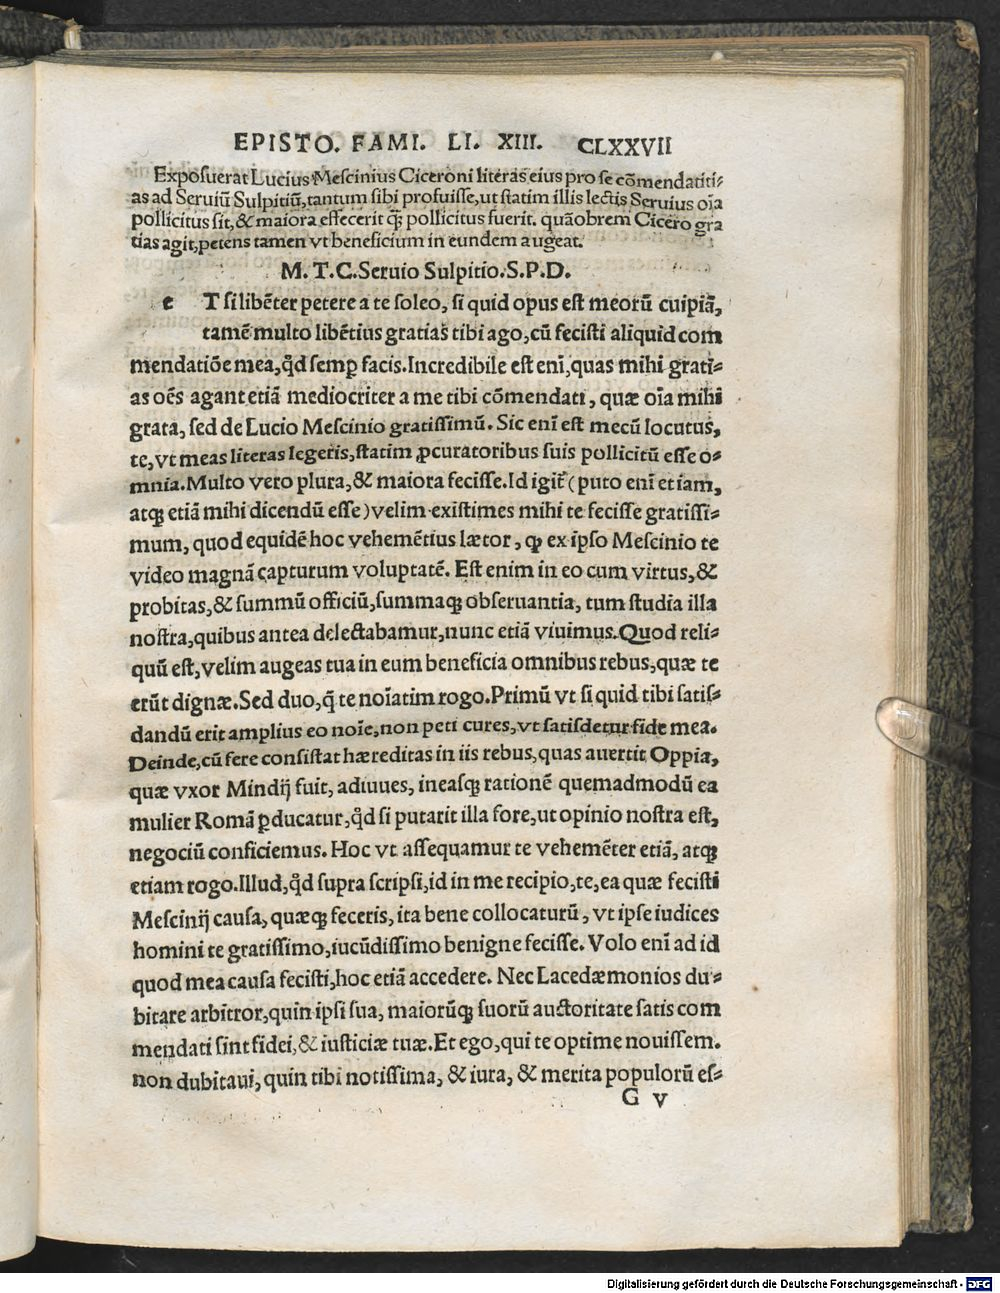 EPISTO. FAMI. LI. XIII. CLXXVII
Exposuerat Lucius Mescinius Ciceroni literas eius pro se cõmendatiti⸗
as ad Seruiũ Sulpitiũ, tantum sibi profuisse, ut statim illis lectis Seruius oĩa
pollicitus sit, & maiora effecerit q̃ȝ pollicitus fuerit. quãobrem Cicero gra
tias agit, petens tamen vt beneficium in eundem augeat.
M. T. C. Seruio Sulpitio. S. P. D.
e T si libẽter petere a te soleo, si quid opus est meorũ cuipiã,
tamẽ multo libẽtius gratias tibi ago, cũ fecisti aliquid com
mendatiõe mea, qđ semꝑ facis. Incredibile est enĩ, quas mihi grati⸗
as oẽs agant etiã mediocriter a me tibi cõmendati, quæ oĩa mihi
grata, sed de Lucio Mescinio gratissimũ. Sic enĩ est mecũ locutus,
te, vt meas literas legeris, statim ꝓcuratoribus suis pollicitũ esse o⸗
mnia. Multo vero plura, & maiora fecisse. Id igit̃ (puto enĩ etiam,
atqꝫ etiã mihi dicendũ esse) velim existimes mihi te fecisse gratissi⸗
mum, quod equidẽ hoc vehemẽtius lætor, ꝙ ex ipso Mescinio te
video magnã capturum voluptatẽ. Est enim in eo cum virtus, &
probitas, & summũ officiũ, summaqꝫ obseruantia, tum studia illa
nostra, quibus antea delectabamur, nunc etiã viuimus. Quod reli⸗
quũ est, velim augeas tua in eum beneficia omnibus rebus, quæ te
erũt dignæ. Sed duo, q̃ te noĩatim rogo. Primũ vt si quid tibi satis⸗
dandũ erit amplius eo noĩe, non peti cures, vt satisdetur fide mea.
Deinde, cũ fere consistat hæreditas in iis rebus, quas auertit Oppia,
quæ vxor Mindij fuit, adiuues, ineasqꝫ rationẽ quemadmodũ ea
mulier Romã ꝑducatur, qđ si putarit illa fore, ut opinio nostra est,
negociũ conficiemus. Hoc vt assequamur te vehemẽter etiã, atqꝫ
etiam rogo. Illud, qđ supra scripsi, id in me recipio, te, ea quæ fecisti
Mescinij causa, quæqꝫ feceris, ita bene collocaturũ, vt ipse iudices
homini te gratissimo, iucũdissimo benigne fecisse. Volo enĩ ad id
quod mea causa fecisti, hoc etiã accedere. Nec Lacedæmonios du⸗
bitare arbitror, quin ipsi sua, maiorũqꝫ suorũ auctoritate satis com
mendati sint fidei, & iusticiæ tuæ. Et ego, qui te optime nouissem.
non dubitaui, quin tibi notissima, & iura, & merita populorũ es⸗
G v
Digitalisierung gefördert durch die Deutsche Forschungsgemeinschaft - DFG